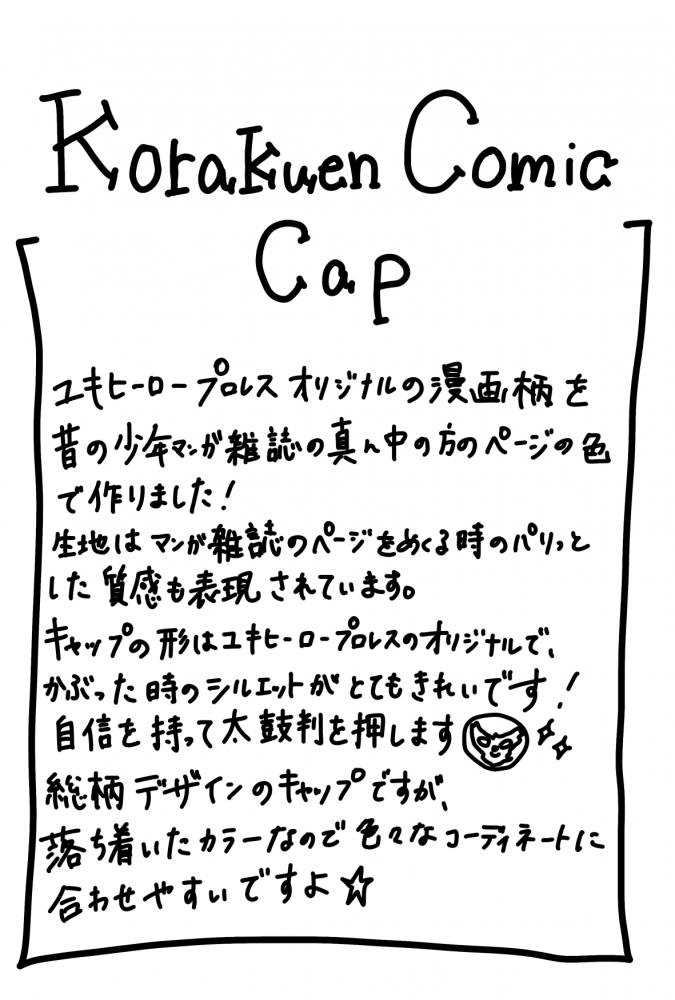 Korakuen Comic
Cap
ユキヒーロープロレス オリジナルの漫画柄を
昔の少年マンガ雑誌の真ん中の方のページの色
で作りました!
生地はマンガ雑誌のページをめくる時のパリッと
した質感も表現されています。
キャップの形はユキヒーロープロレスのオリジナルで、
かぶった時のシルエットがとてもきれいです!
自信を持って太鼓判を押します
総柄デザインのキャップですが、
落ち着いたカラーなので色々なコーディネートに
合わせやすいですよ☆